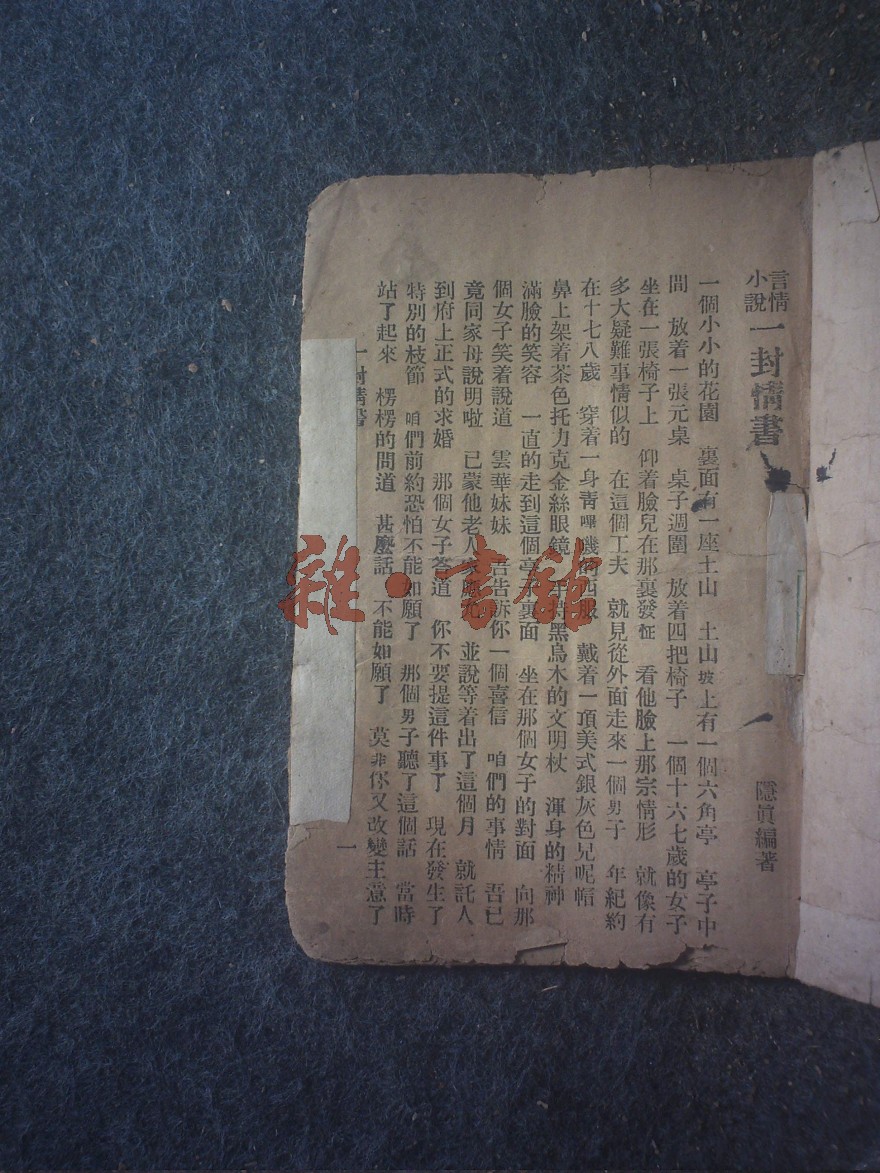 言情小說 一封情書
隱眞編著
一個小小的花園 裏面有一座土山 土山坡上有一個六角亭 亭子中
間 放着一張元桌 桌子週圍 放着四把椅子 一個十六七歲的女子
坐在一張椅子上 仰着臉兒在那裏發怔 看他臉上那宗情形 就像有
多大疑難事情似的 在這個工夫 就見從外面走來一個男子 年紀約
在十七八歲 穿着一身靑嗶嘰的西服 戴着一項美式銀灰色兒呢帽
鼻上架着茶色托力克金絲眼鏡 手持黑烏木的文明杖 渾身的精神
滿臉的笑容 一直的走到這個亭子裏面 坐在那個女子的對面 向那
個女子笑着說道 雲華妹妹 吿吿訴你一個喜信 咱們的事情 吾已
竟同家母說明啦 已蒙他老人家 並說等着出了這個月 就託人
到府上正式的求婚 那個女子荅道 你不要提這件事了 現在發生了
特別的枝節 咱們前約恐怕不能如願了 那個男子聽了這個話 當時
站了起來 楞楞的問道 甚麼話 不能如願了 莫非你又改變主意了
一封情書
一
雜·書館